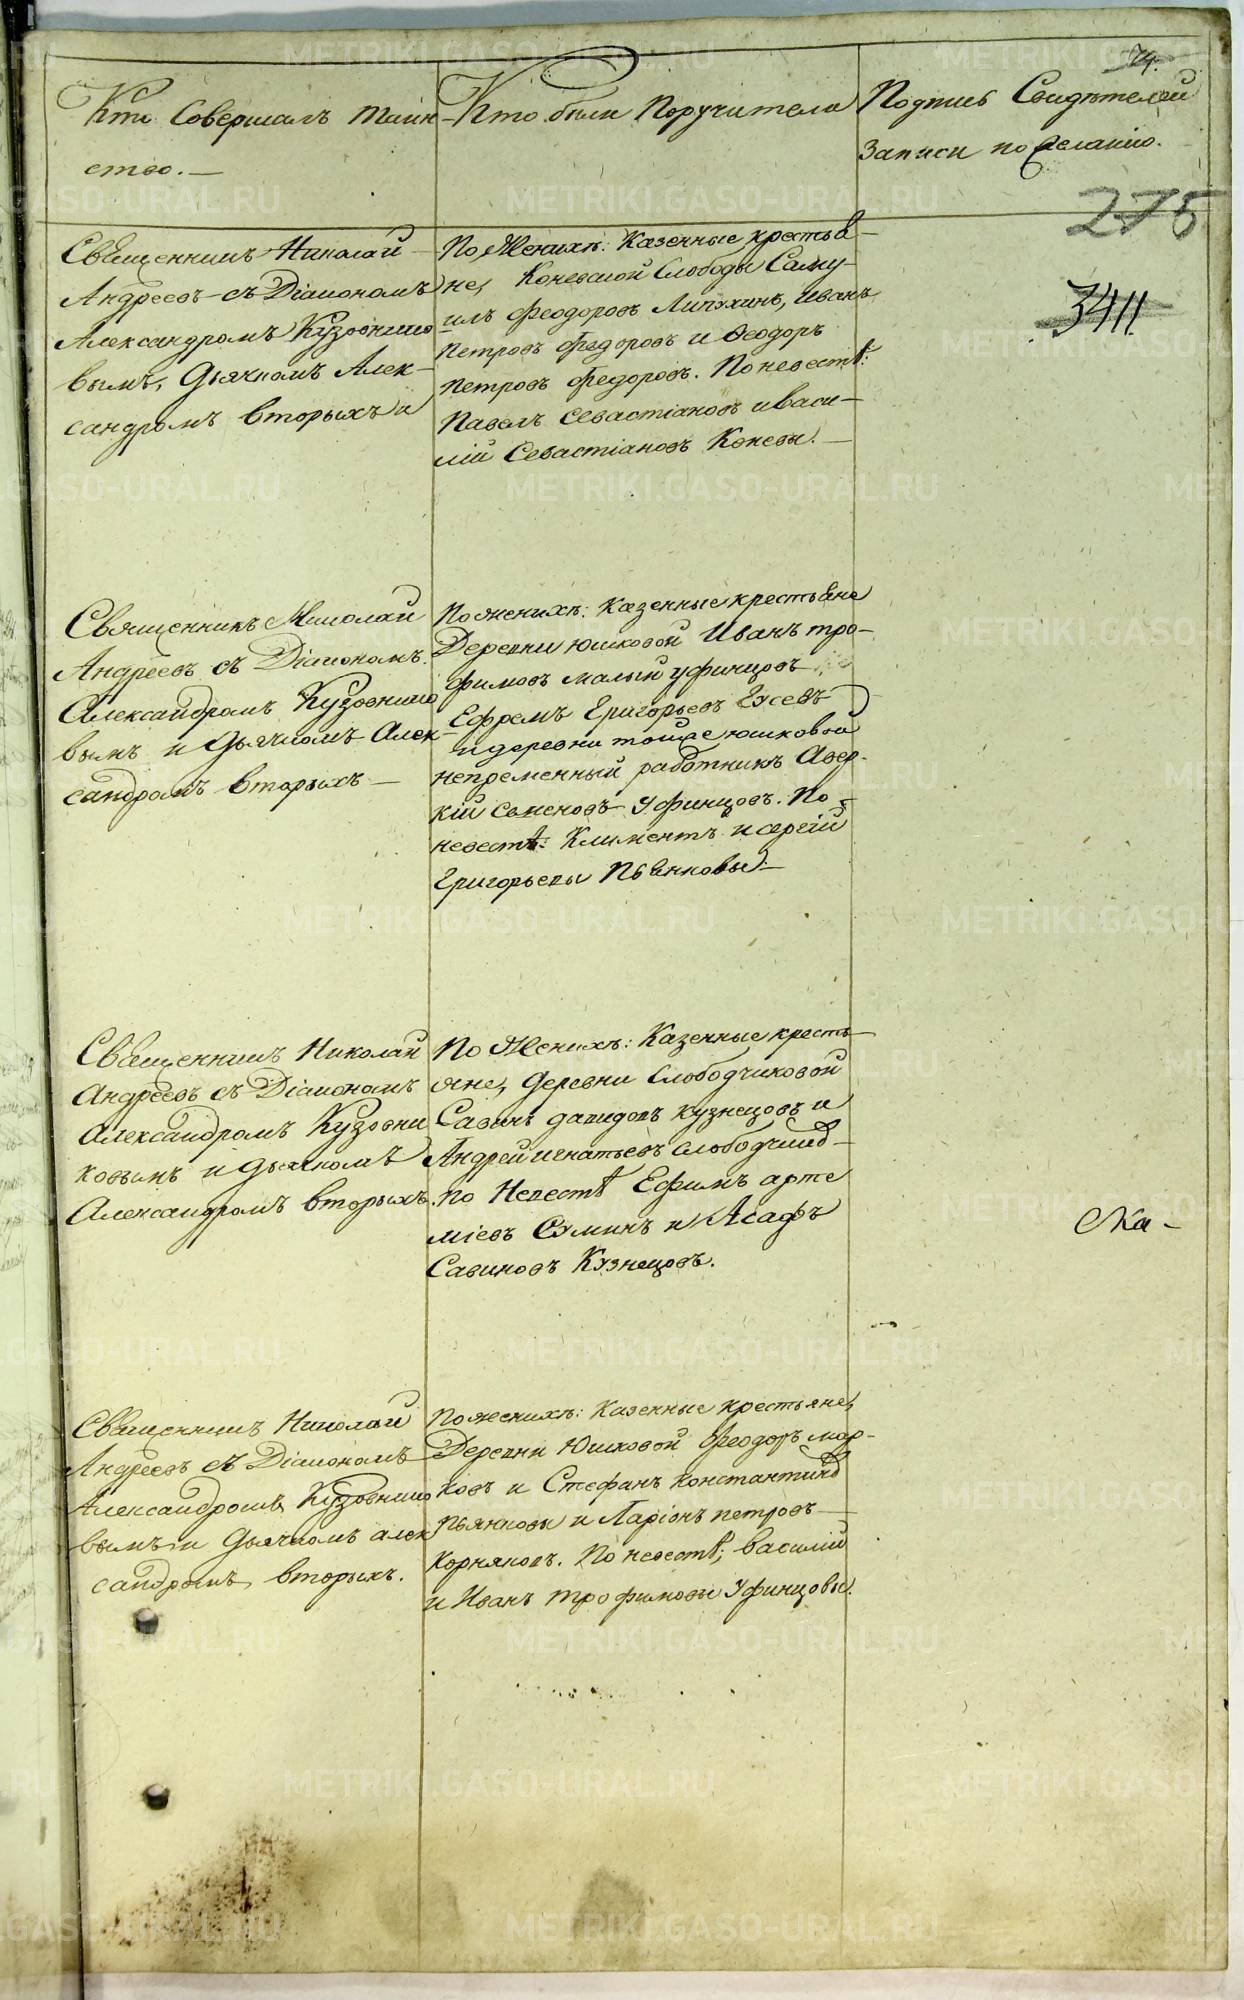 74.
Кто Совершалъ таин-
ство.—
Кто были Поручители
Подпись Свидѣтелей
Записи по желанію.
275
3411
Священникъ Николай
Андреевъ съ Діакономъ
Александромъ Кузовнико
вымъ, Дьячкомъ Алек-
сандромъ Вторыхъ и
По Женихѣ: Казенные крестья-
не, Коневской Слободы Саму-
илъ Феодоровъ Липухинъ, Иванъ
Петровъ Федоровъ и Феодоръ
Петровъ Федоровъ. По невестѣ:
Павелъ Севастіановъ и Васи-
лій Севастіановъ Коневы.—
Священникъ Николай
Андреевъ съ Діакономъ
Александромъ Кузовнико
вымъ и Дьячкомъ Алек-
сандромъ Вторыхъ—
По женихѣ: Казенные крестьяне
Деревни Юшковой Иванъ Тро-
фимовъ малый Уфинцовъ
Ефремъ Григорьевъ Гусевъ
и деревни тойже Юшковой
непременный работникъ Авер-
кій Семеновъ Уфинцовъ. По
невестѣ: Климентъ и Сергій
Григорьевы Пьянковы.—
Священникъ Николай
Андреевъ съ Діакономъ
Александромъ Кузовни
ковымъ и Дьячкомъ
Александромъ Вторыхъ.
По Женихѣ: Казенные кресть-
яне, Деревни Слободчиковой
Савинъ Давидовъ Кузнецовъ и
Андрей Игнатьевъ Слободчиков-
По Невестѣ Ефимъ Арте
міевъ Суминъ и Асафъ
Савиновъ Кузнецовъ.
Ска-
Священникъ Николай
Андреевъ съ Діакономъ
Александромъ Кузовнико
вымъ и Дьячкомъ Алек
сандромъ Вторыхъ.
По женихѣ: Казенные крестьяне,
Деревни Юшковой Феодоръ Мар-
ковъ и Стефанъ Константиновъ
Пьянковы и Ларіонъ Петровъ
Корняковъ. По невестѣ; Василій
и Иванъ Трофимовы Уфинцовы.
METRIKI.GASO-URAL.RU